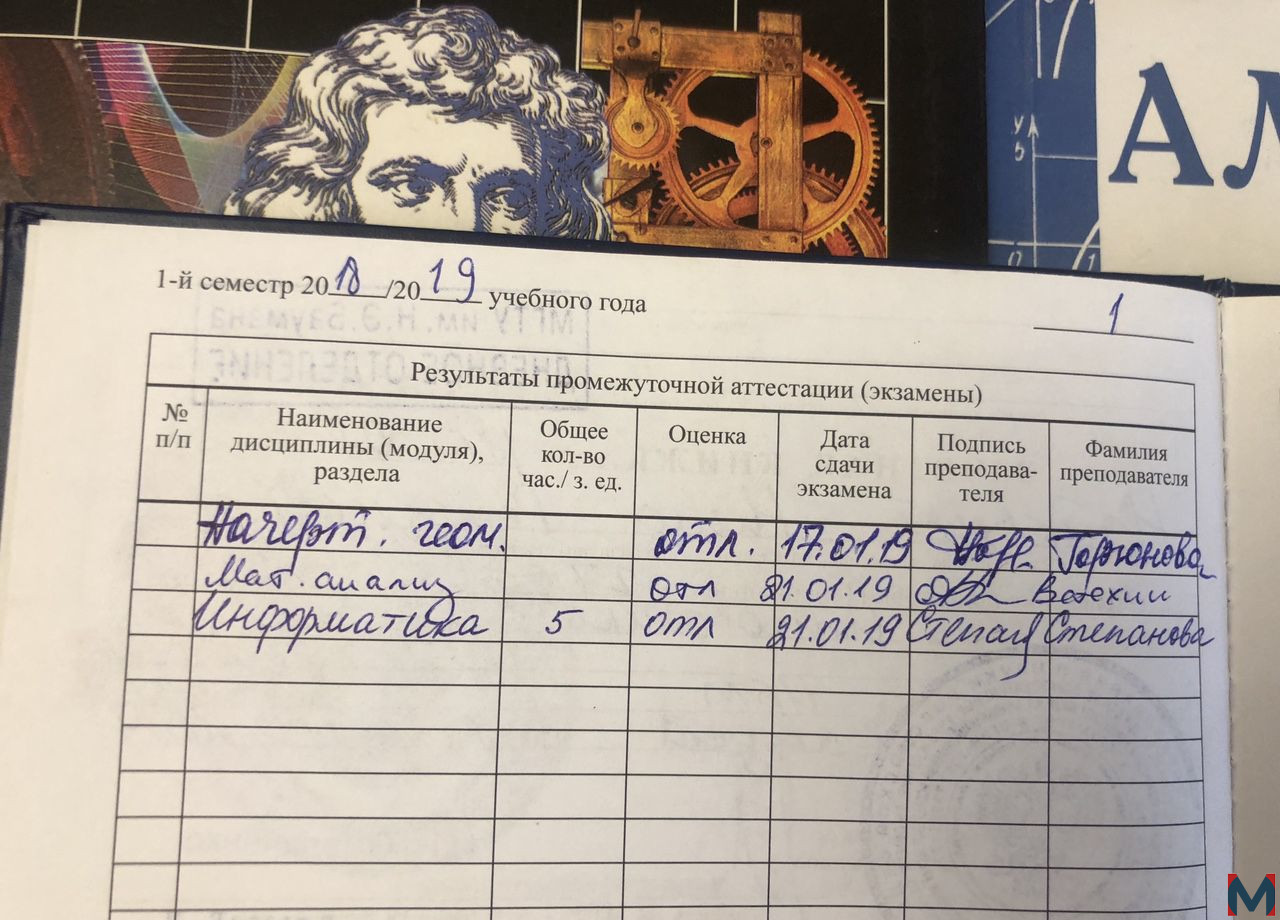 АМ
y
b
0
1
1-й семестр 2018/2019 учебного года
1
Результаты промежуточной аттестации (экзамены)
№ п/п
Наименование дисциплины (модуля), раздела
Общее кол-во час./ з. ед.
Оценка
Дата сдачи экзамена
Подпись преподава-теля
Фамилия преподавателя
Начерт. геом. отл. 17.01.19 Горюнова
Мат. анализ отл 21.01.19
Информатика 5 отл 21.01.19 Степан Степанова
М